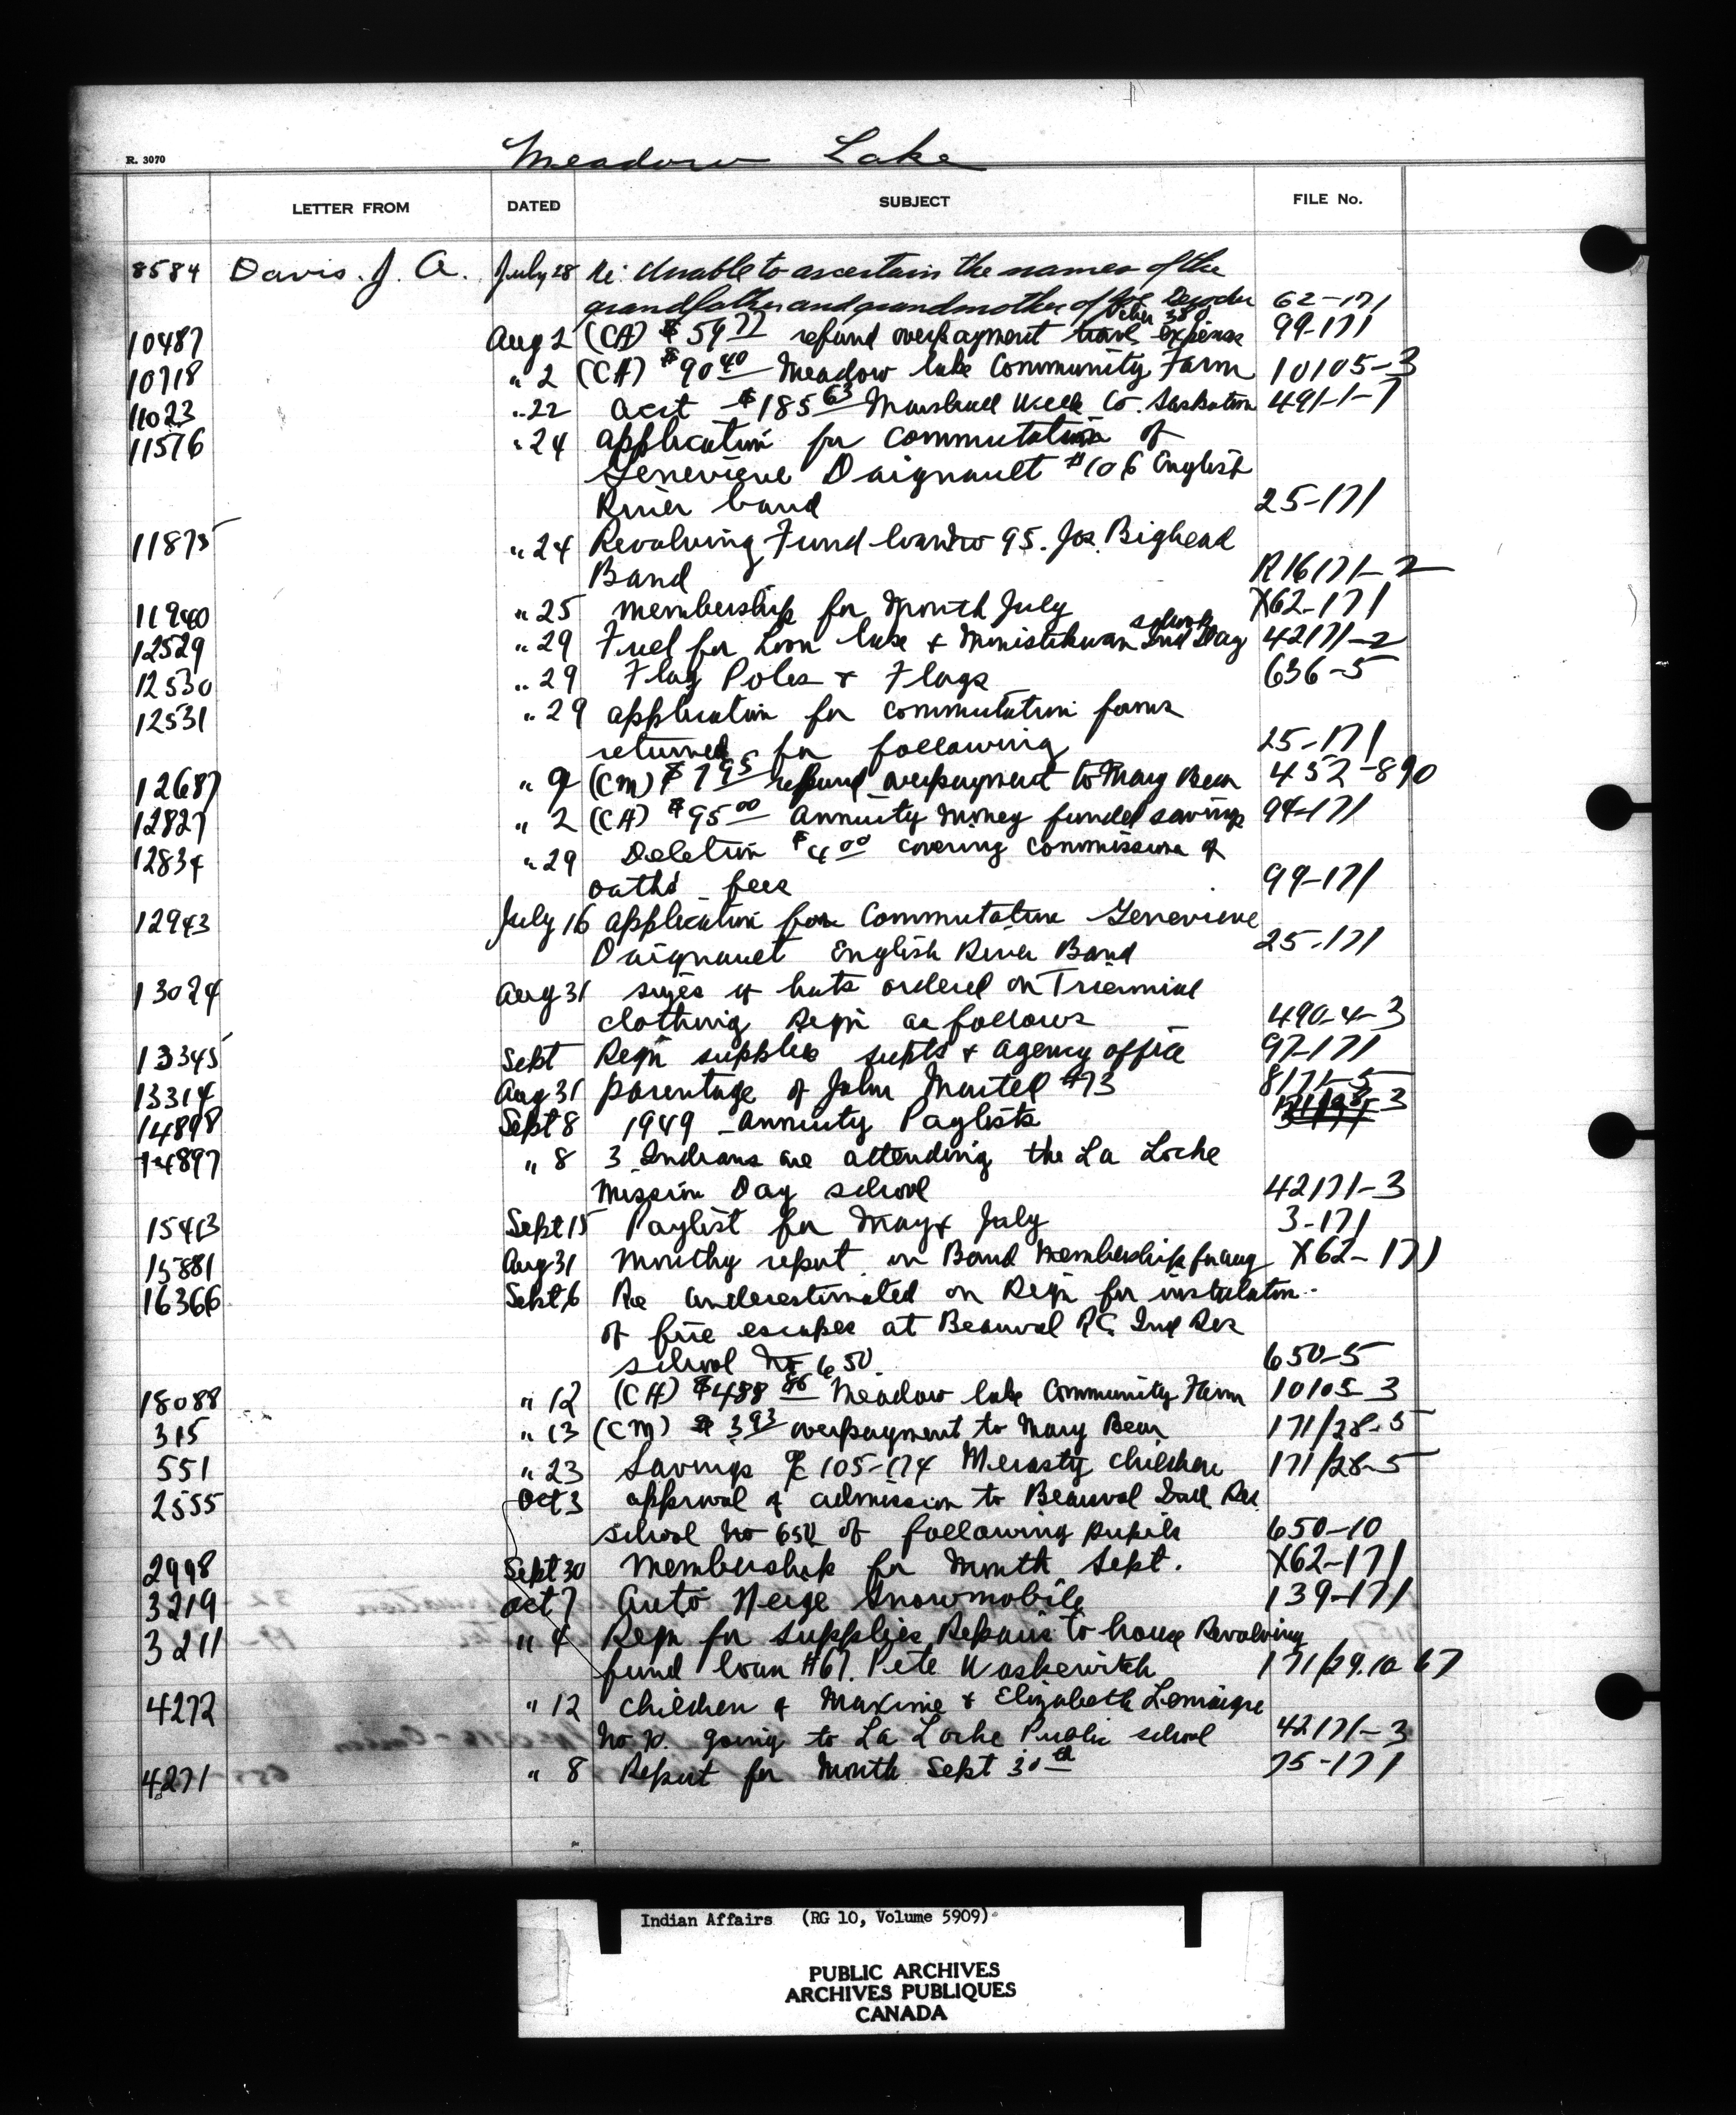 Meadow Lake
R. 3070
LETTER FROM DATED SUBJECT FILE No.
8584 Davis. J. A. July 28 Re: Unable to ascertain the names of the
grandfather and grandmother of Joe 62-171
10487 Aug 2 (CA) $59 77 refund overpayment travel expense 99-171
10718 " 2 (CA) $90 40 Meadow lake Community Farm 10105-3
11023 " 22 acct $185 63 Marshall Wells Co. Saskatoon 491-1-7
11576 " 24 application for commutation of
Genevieve Daignault #106 English
River band 25-171
11875 " 24 Revolving Fund loan no 95. Jos. Bighead
Band R16171-2
11940 " 25 membership for month July X62-171
schools
12529 " 29 Fuel for Loon lake & Ministikwan Ind Day 42171-2
12530 " 29 Flag Poles & Flags 636-5
12531 " 29 application for commutation forms
returned for following 25-171
12687 " 9 (CM) $7 95 refund overpayment to Mary Bear 452-890
12827 " 2 (CA) $95 00 Annuity money funded savings 94-171
12834 " 29 Deletion $4 00 covering commissions of
oaths fees 99-171
12943 July 16 application for Commutation Genevieve
Daignault English River Band 25-171
13024 Aug 31 sizes of hats ordered on Triennial
clothing Reqn as follows 490-4-3
13345 Sept Reqn supplies supts & agency office 97-171
13314 Aug 31 parentage of John Martell #73 8171-5
14898 Sept 8 1949 - Annuity Paylists
14897 " 8 3 Indians are attending the La Loche
Mission Day school 42171-3
15413 Sept 15 Paylist for May & July 3-171
15881 Aug 31 Monthy report on Band Membership for aug X62-171
16366 Sept 6 Re underestimated on Reqn for instalation
of fire escapes at Beauval R.C. Ind Res
school no 650 650-5
18088 " 12 (CA) $488 86 Meadow lake Community Farm 10105-3
315 " 13 (CM) $3 93 overpayment to Mary Bear 171/28-5
551 " 23 Savings a/c 105-174 Merasty children 171/28-5
2555 Oct 3 approval of admission to Beauval Ind. Res.
school no 650 of following pupils 650-10
2998 Sept 30 Membership for Month Sept. X62-171
3219 Oct 7 Auto Neige Snowmobile 139-171
3211 " 4 Reqn for supplies Repairs to house Revolving
fund loan #67. Pete Waskewitch 171/29.10 67
4272 " 12 children of Maxime & Elizabeth Lemaigre
no 10. going to La Loche Public school 42171-3
4271 " 8 Report for Month Sept 30th 75-171
Indian Affairs (RG 10, Volume 5909)
PUBLIC ARCHIVES
ARCHIVES PUBLIQUES
CANADA